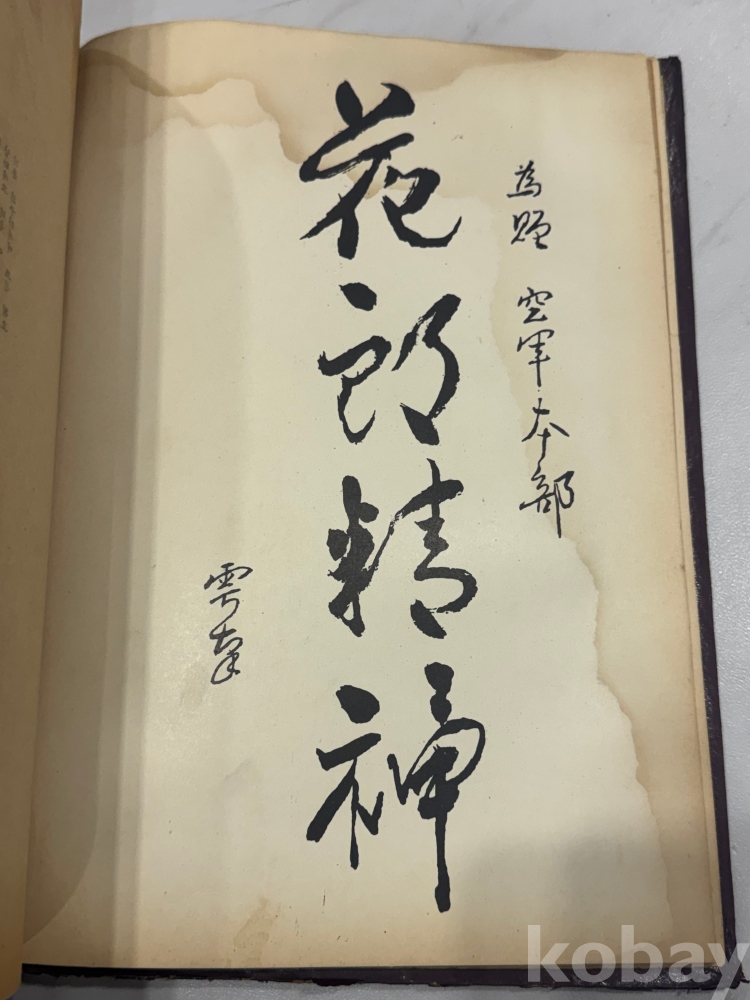 為贈 空軍本部
花郎精神
雩南
kobay